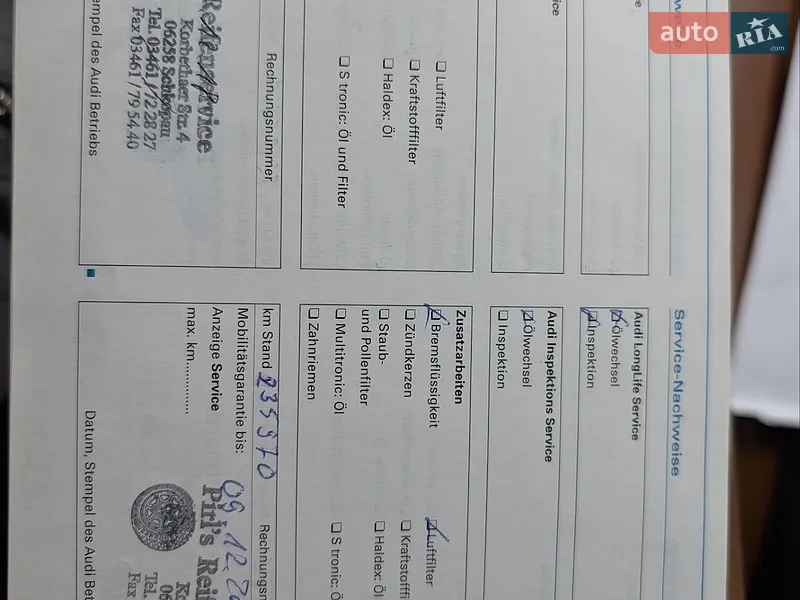 auto RIA.com
Luftfilter
Kraftstofffilter
Haldex: Öl
S tronic: Öl und Filter
Rechnungsnummer
Reifenservice
Korbethaer Str. 4
06258 Schkopau
Tel. 03461 / 72 28 27
Fax 03461 / 79 54 40
Stempel des Audi Betriebs
Service-Nachweise
Audi LongLife Service
Ölwechsel
Inspektion
Audi Inspektions Service
Ölwechsel
Inspektion
Zusatzarbeiten
Bremsflüssigkeit
Luftfilter
Zündkerzen
Kraftstofffi
Staub-
und Pollenfilter
Haldex: Öl
Multitronic: Öl
S tronic: Ö
Zahnriemen
km Stand 239970
Rechnungsn
Mobilitätsgarantie bis: 09.12.20
Anzeige Service
max. km
Pirl's Reif
Tel.
Fax
Datum, Stempel des Audi Bet